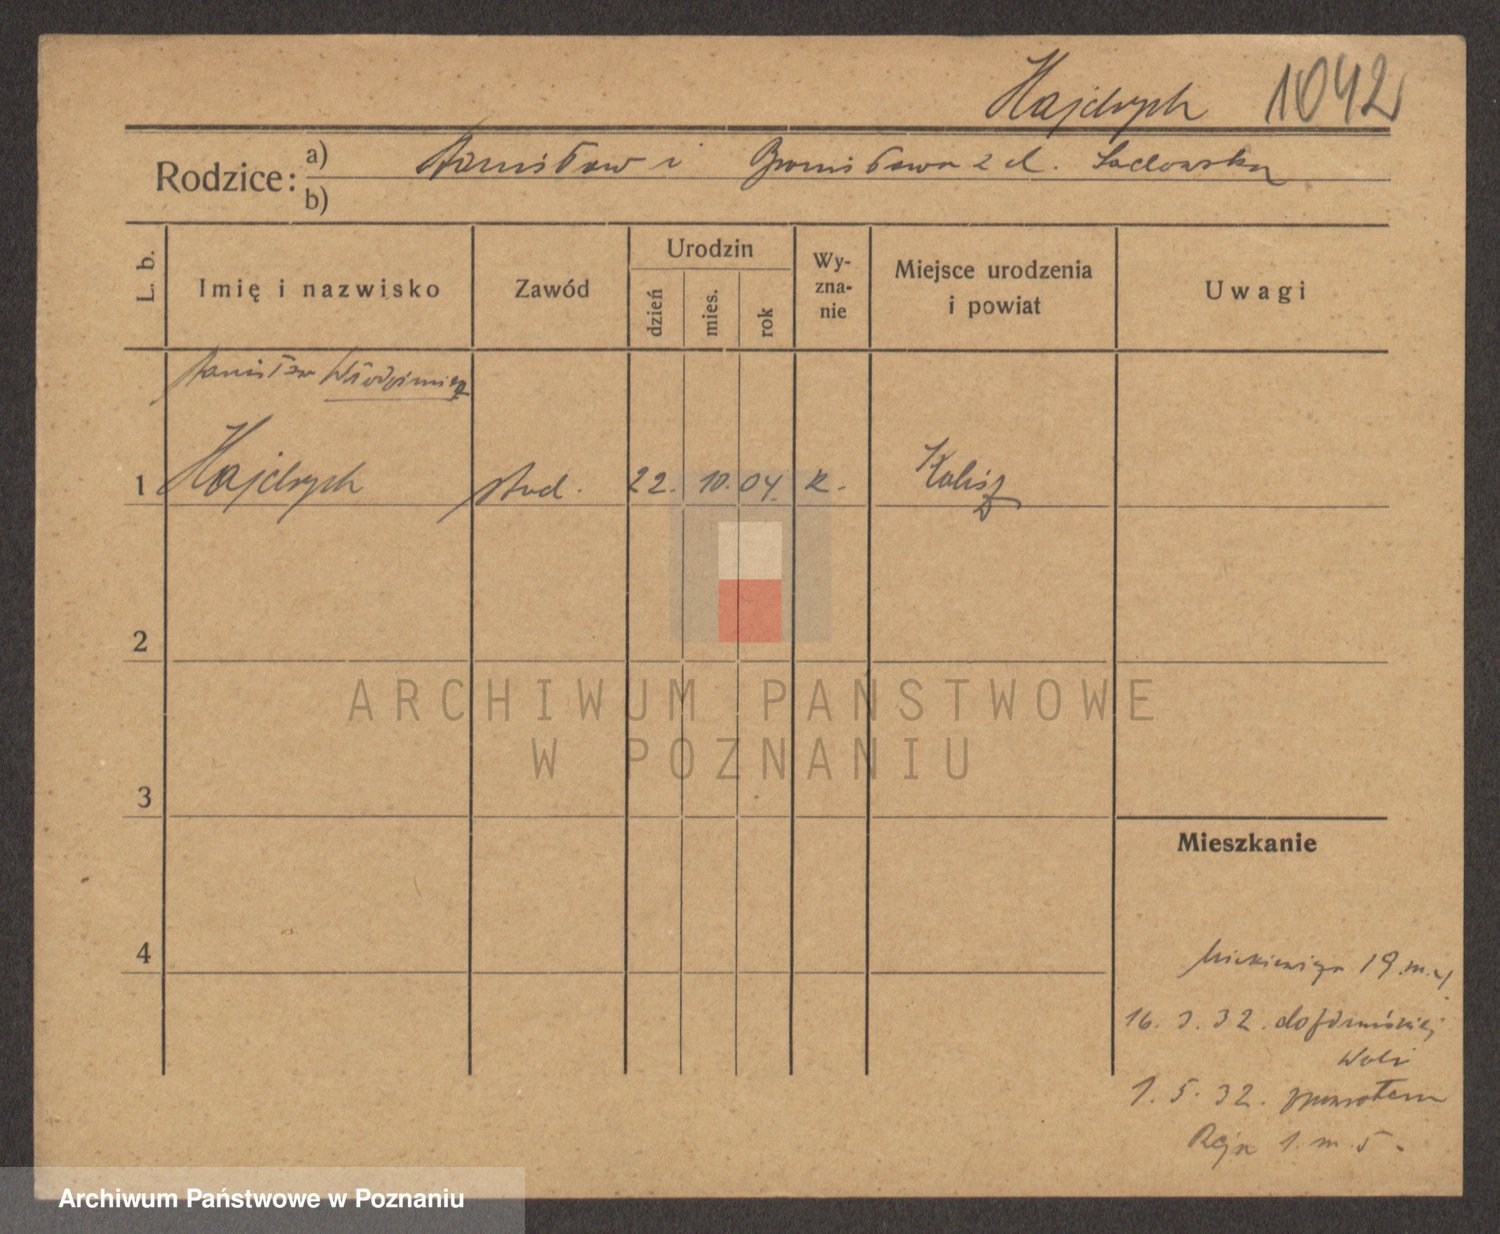 Hajdrych 1042
Rodzice: a) Stanisław i Bronisława z d. Sadowska
b)
L. b.
Imię i nazwisko
Zawód
Urodzin
dzień
mies.
rok
Wy-
zna-
nie
Miejsce urodzenia
i powiat
Uwagi
Stanisław Włodzimierz
1 Hajdrych stud. 22. 10. 04. R. Kalisz
2
3
4
Mieszkanie
Mickiewicza 19. m. 4.
16. 3. 32. do
Woli
1. 5. 32. zpowrotem
Reja 1. m. 5.
ARCHIWUM PAŃSTWOWE
W POZNANIU
Archiwum Państwowe w Poznaniu